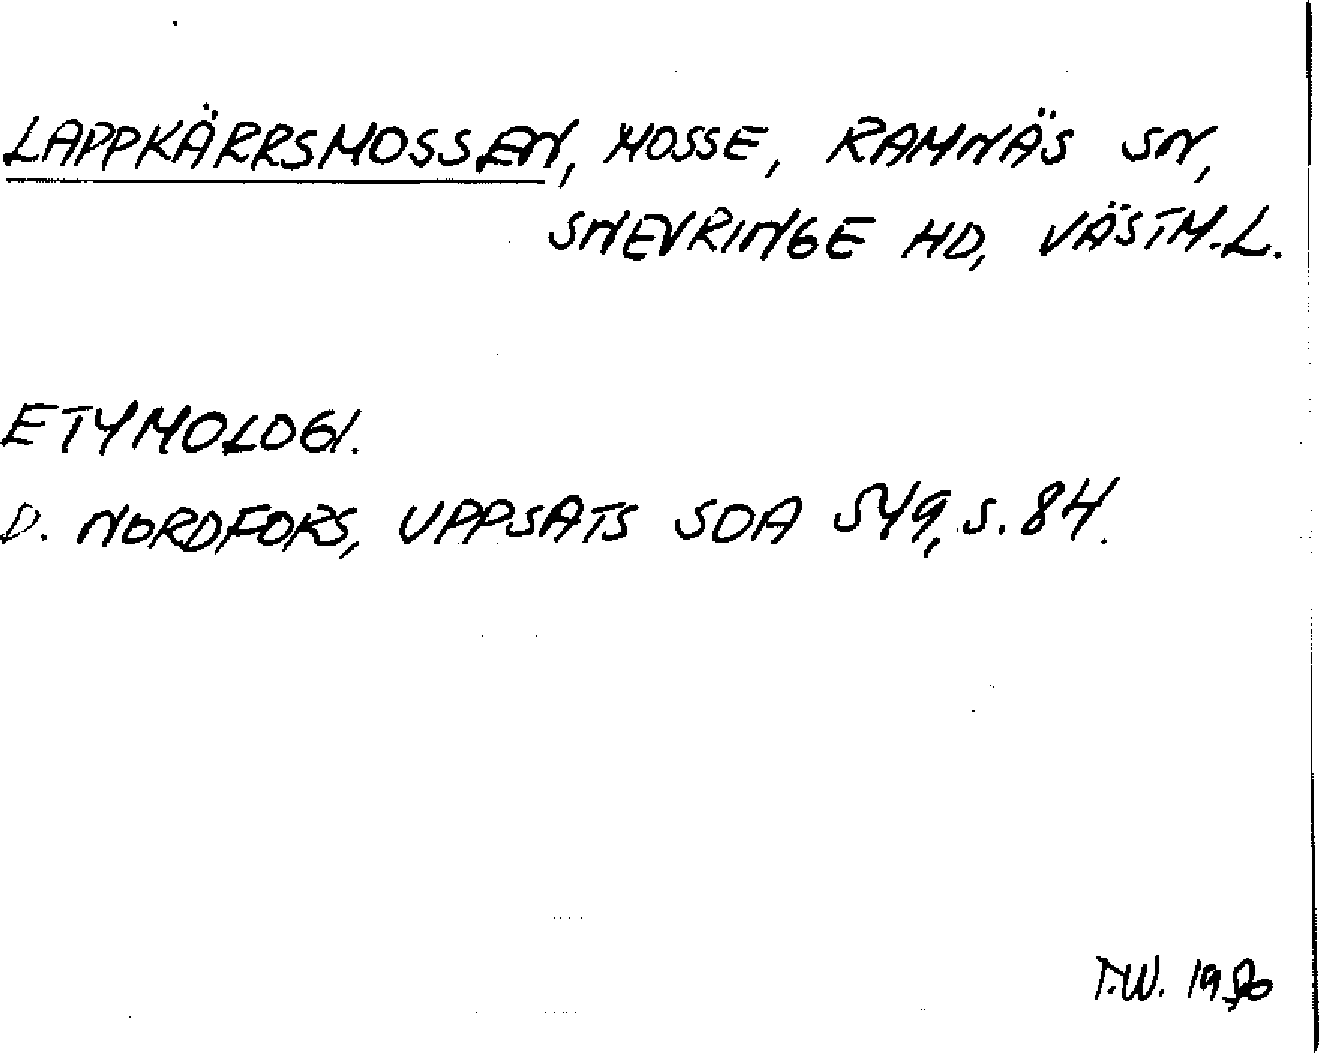 LAPPKÄRRSMOSSEN, MOSSE, RAMNÄS SN,
SNEVRINGE HD, VÄSTM.L.
ETYMOLOGI.
D. NORDFORS, UPPSATS SOA 549, S. 84.
T.W.